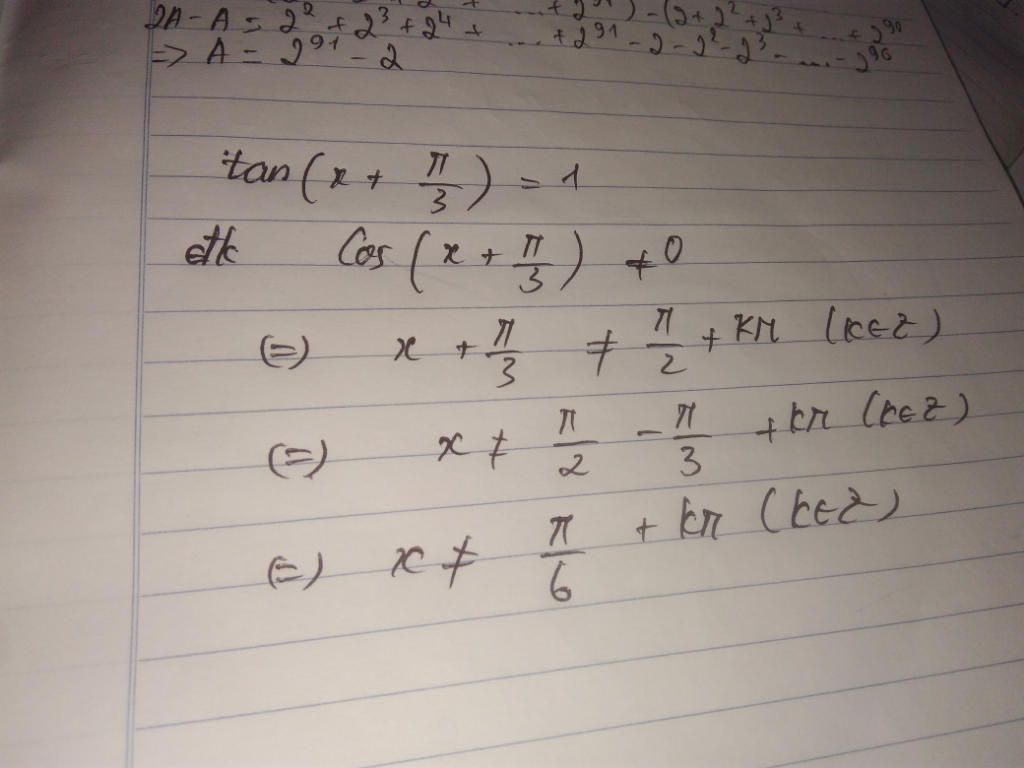 + 2^91) - (2 + 2^2 + 2^3 + ... + 2^90
2A - A = 2^2 + 2^3 + 2^4 + ... + 2^91 - 2 - 2^2 - 2^3 - ... - 2^90
=> A = 2^91 - 2
tan(x + π/3) = 1
đk cos(x + π/3) ≠ 0
(=) x + π/3 ≠ π/2 + kπ (k∈Z)
(=) x ≠ π/2 - π/3 + kπ (k∈Z)
(=) x ≠ π/6 + kπ (k∈Z)